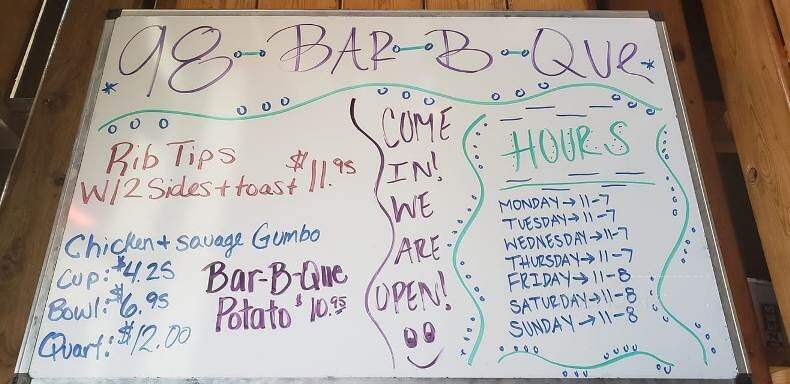 98-BAR-B-QUE
Rib Tips
W/2 Sides + toast $11.95
Chicken + sauage Gumbo
Cup: $4.25
Bowl: $6.95
Quart: $12.00
Bar-B-Que
Potato $10.95
COME
IN!
WE
ARE
OPEN!
HOURS
MONDAY → 11-7
TUESDAY → 11-7
WEDNESDAY → 11-7
THURSDAY → 11-7
FRIDAY → 11-8
SATURDAY → 11-8
SUNDAY → 11-8